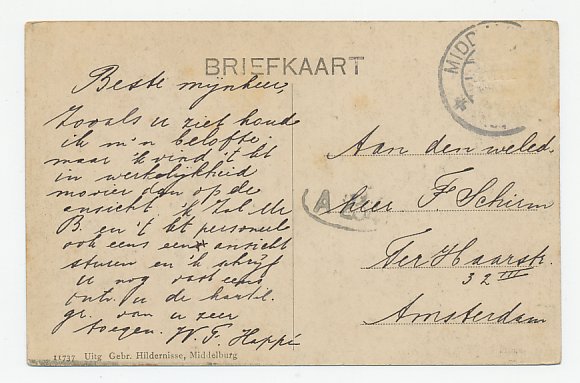 BRIEFKAART
MIDD
Beste mijnheer,
Zooals u ziet houde
ik m'n belofte.
maar 'k vind 't ht
in werkelijkheid
mooier dan op de
ansicht. 'k Zal Mr
B. en 't ht personeel
ook eens een ansicht
sturen en 'k schrijf
u nog vast eens
ontv. u de hartel.
gr. van u zeer
toegen. W. F. Happé
Aan den weled.
heer F. Schirm
Ter Haarstr.
32 III
Amsterdam
11737 Uitg Gebr. Hildernisse, Middelburg